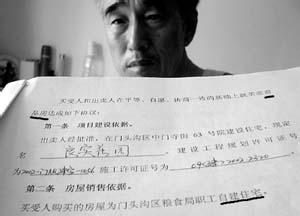 买受人和出卖人在平等、自愿、协商一致的基础上就买卖商
品房达成如下协议:
第一条 项目建设依据。
出卖人经批准,在门头沟区中门寺街 63 号院建设住宅,现定
名 建设工程规划许可证号
为 施工许可证号为
第二条 房屋销售依据。
买受人购买的房屋为门头沟区粮食局职工自建住宅。